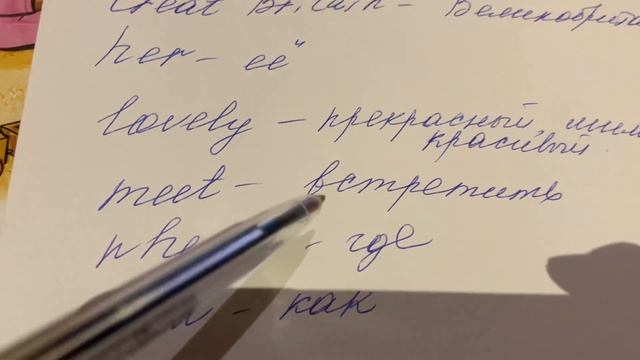 Great Britain - Великобрита
her - её
lovely - прекрасный,
красивый
meet - встретить
- где
- как